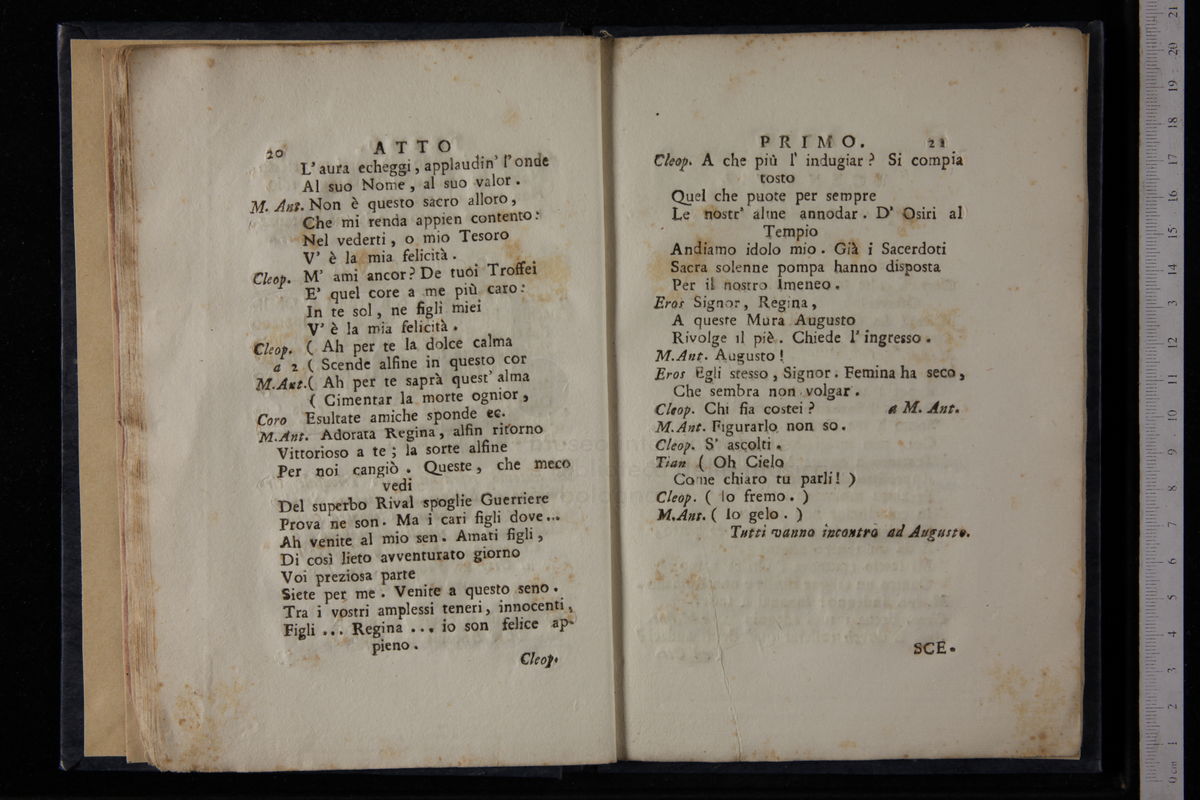 20 ATTO
L'aura echeggi, applaudin' l'onde
Al suo Nome, al suo valor.
M. Ant. Non è questo sacro alloro,
Che mi renda appien contento:
Nel vederti, o mio Tesoro
V' è la mia felicità.
Cleop. M' ami ancor? De tuoi Troffei
E' quel core a me più caro:
In te sol, ne figli miei
V' è la mia felicità.
Cleop. ( Ah per te la dolce calma
a 2 ( Scende alfine in questo cor
M.Ant.( Ah per te saprà quest' alma
( Cimentar la morte ognior,
Coro Esultate amiche sponde ec.
M.Ant. Adorata Regina, alfin ritorno
Vittorioso a te; la sorte alfine
Per noi cangiò. Queste, che meco
vedi
Del superbo Rival spoglie Guerriere
Prova ne son. Ma i cari figli dove...
Ah venite al mio sen. Amati figli,
Di così lieto avventurato giorno
Voi preziosa parte
Siete per me. Venite a questo seno.
Tra i vostri amplessi teneri, innocenti,
Figli ... Regina ... io son felice ap-
pieno.
Cleop.
PRIMO. 21
Cleop. A che più l' indugiar? Si compia
tosto
Quel che puote per sempre
Le nostr' alme annodar. D' Osiri al
Tempio
Andiamo idolo mio. Già i Sacerdoti
Sacra solenne pompa hanno disposta
Per il nostro Imeneo.
Eros Signor, Regina,
A queste Mura Augusto
Rivolge il piè. Chiede l' ingresso.
M.Ant. Augusto!
Eros Egli stesso, Signor. Femina ha seco,
Che sembra non volgar.
Cleop. Chi fia costei? a M. Ant.
M.Ant. Figurarlo non so.
Cleop. S' ascolti.
Tian ( Oh Cielo
Come chiaro tu parli! )
Cleop. ( Io fremo. )
M.Ant. ( Io gelo. )
Tutti vanno incontro ad Augusto.
SCE.
0 cm 1 2 3 4 5 6 7 8 9 10 11 12 13 14 15 16 17 18 19 20 21